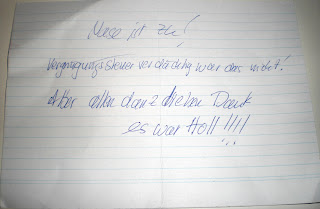 Mese ist zu!
Vergnügungssteuerverdächtig war das nicht!
Aber allen danz lieben Dank
es war Holl!!!!